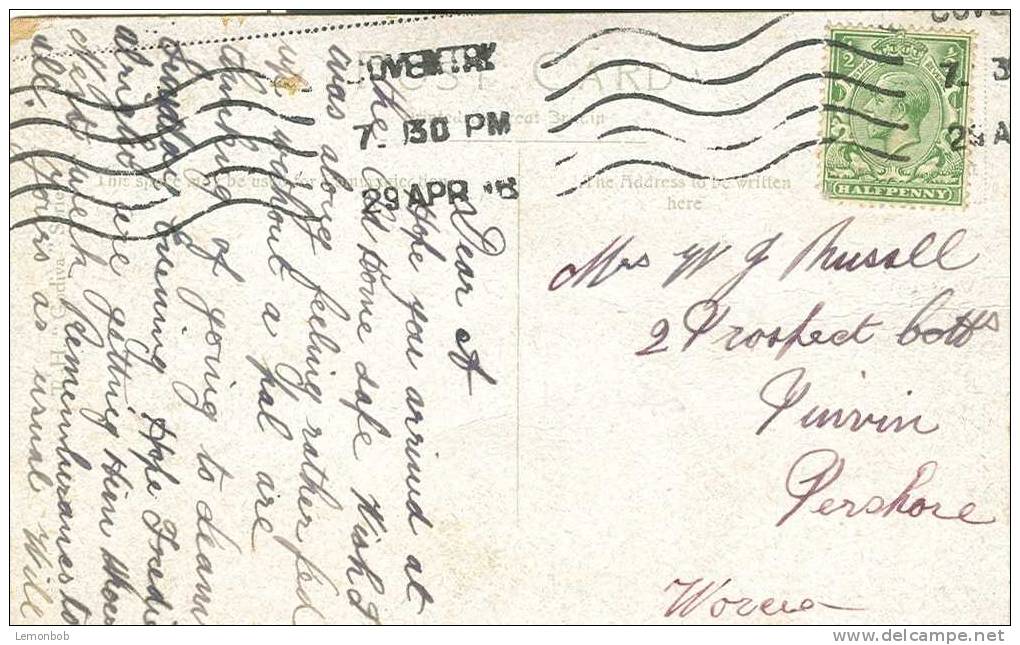 COVENTRY
7- 30 PM
29 APR 18
POST CARD
Printed in Great Britain
This space may be used for communication
The Address to be written
here
HALFPENNY
COVE
7- 3
29 A
Dear A
Hope you arrived at
the Old Home safe Wish I
was along feeling rather fed
up without a pal are
thinking of going to
Evening Hope Freedie
alright are getting Him
Next week Remembrances to
all. Yours as usual Will
Mrs W J Russell
2 Prospect Cotts
Pinvin
Pershore
Worces
Lemonbob
www.delcampe.net